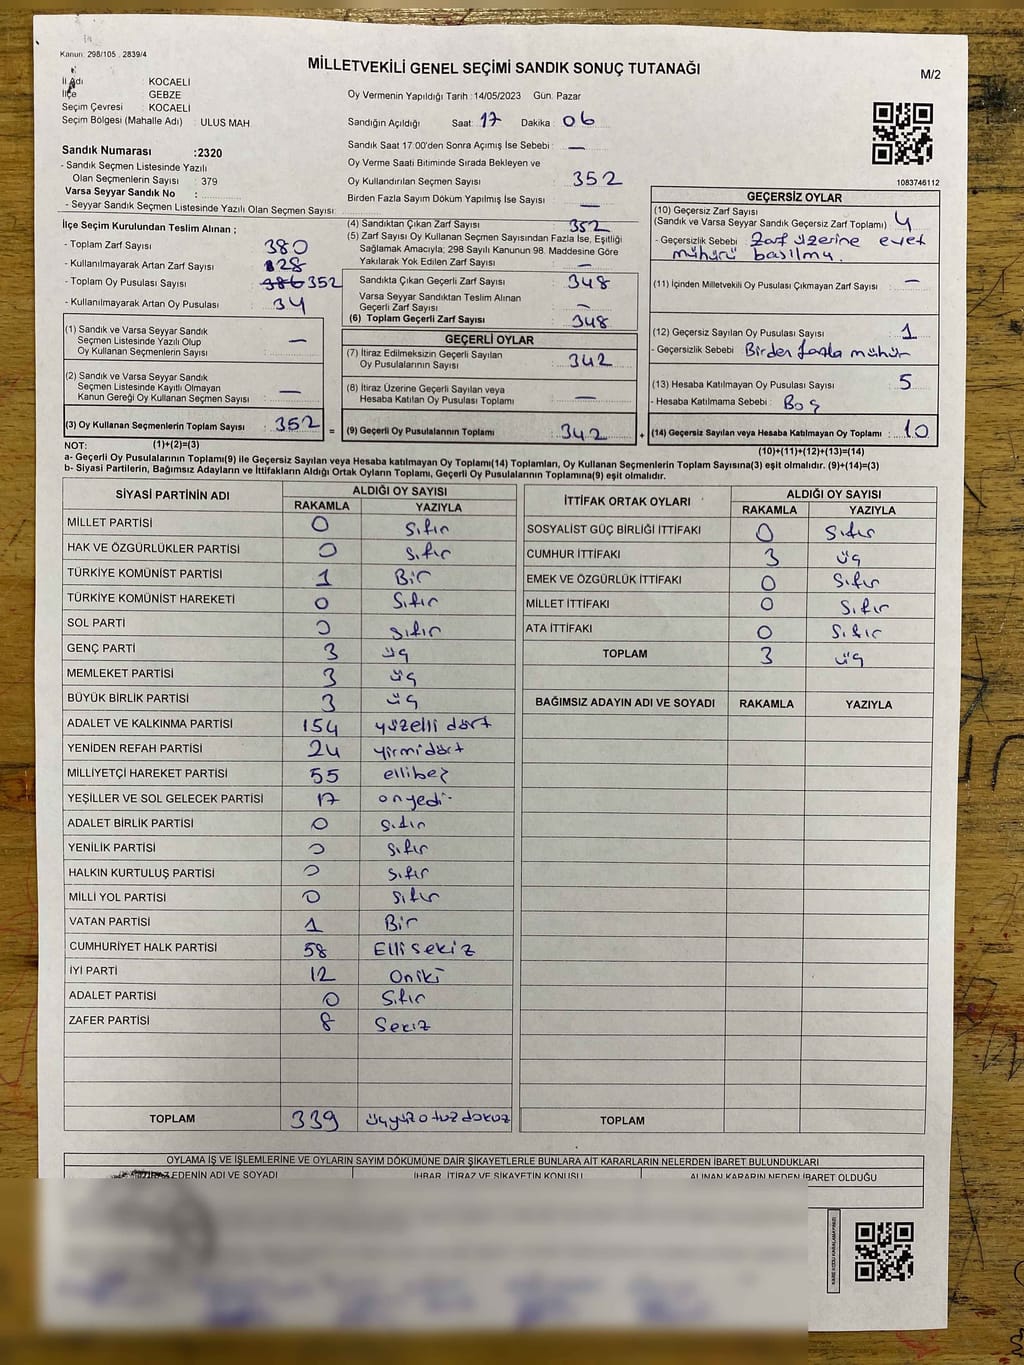 Kanun: 298/105 . 2839/4
MİLLETVEKİLİ GENEL SEÇİMİ SANDIK SONUÇ TUTANAĞI
M/2
İl Adı KOCAELİ
İlçe GEBZE
Seçim Çevresi : KOCAELİ
Seçim Bölgesi (Mahalle Adı) : ULUS MAH
Sandık Numarası :2320
- Sandık Seçmen Listesinde Yazılı
Olan Seçmenlerin Sayısı : 379
Varsa Seyyar Sandık No :
- Seyyar Sandık Seçmen Listesinde Yazılı Olan Seçmen Sayısı:
Oy Vermenin Yapıldığı Tarih :14/05/2023 Gün: Pazar
Sandığın Açıldığı Saat: 17 Dakika : 06
Sandık Saat 17:00'den Sonra Açılmış İse Sebebi : —
Oy Verme Saati Bitiminde Sırada Bekleyen ve
Oy Kullandırılan Seçmen Sayısı 352
Birden Fazla Sayım Döküm Yapılmış İse Sayısı —
1083746112
İlçe Seçim Kurulundan Teslim Alınan ;
- Toplam Zarf Sayısı 380
- Kullanılmayarak Artan Zarf Sayısı 28
- Toplam Oy Pusulası Sayısı : 386 352
- Kullanılmayarak Artan Oy Pusulası : 34
(1) Sandık ve Varsa Seyyar Sandık
Seçmen Listesinde Yazılı Olup
Oy Kullanan Seçmenlerin Sayısı : —
(2) Sandık ve Varsa Seyyar Sandık
Seçmen Listesinde Kayıtlı Olmayan
Kanun Gereği Oy Kullanan Seçmen Sayısı : —
(3) Oy Kullanan Seçmenlerin Toplam Sayısı : 352 =
(4) Sandıktan Çıkan Zarf Sayısı : 352
(5) Zarf Sayısı Oy Kullanan Seçmen Sayısından Fazla İse, Eşitliği
Sağlamak Amacıyla: 298 Sayılı Kanunun 98. Maddesine Göre
Yakılarak Yok Edilen Zarf Sayısı : —
Sandıkta Çıkan Geçerli Zarf Sayısı : 348
Varsa Seyyar Sandıktan Teslim Alınan
Geçerli Zarf Sayısı : —
(6) Toplam Geçerli Zarf Sayısı : 348
GEÇERLİ OYLAR
(7) İtiraz Edilmeksizin Geçerli Sayılan
Oy Pusulalarının Sayısı : 342
(8) İtiraz Üzerine Geçerli Sayılan veya
Hesaba Katılan Oy Pusulası Toplamı : —
(9) Geçerli Oy Pusulalarının Toplamı : 342 +
GEÇERSİZ OYLAR
(10) Geçersiz Zarf Sayısı
(Sandık ve Varsa Seyyar Sandık Geçersiz Zarf Toplamı) : 4
- Geçersizlik Sebebi : Zarf üzerine evet
mühürü basılmış.
(11) İçinden Milletvekili Oy Pusulası Çıkmayan Zarf Sayısı : —
(12) Geçersiz Sayılan Oy Pusulası Sayısı : 1
- Geçersizlik Sebebi : Birden fazla mühür
(13) Hesaba Katılmayan Oy Pusulası Sayısı : 5
- Hesaba Katılmama Sebebi : Boş
(14) Geçersiz Sayılan veya Hesaba Katılmayan Oy Toplamı : 10
NOT: (1)+(2)=(3)
(10)+(11)+(12)+(13)=(14)
a- Geçerli Oy Pusulalarının Toplamı(9) ile Geçersiz Sayılan veya Hesaba katılmayan Oy Toplamı(14) Toplamları, Oy Kullanan Seçmenlerin Toplam Sayısına(3) eşit olmalıdır. (9)+(14)=(3)
b- Siyasi Partilerin, Bağımsız Adayların ve İttifakların Aldığı Ortak Oyların Toplamı, Geçerli Oy Pusulalarının Toplamına(9) eşit olmalıdır.
SİYASİ PARTİNİN ADI ALDIĞI OY SAYISI
RAKAMLA YAZIYLA
MİLLET PARTİSİ 0 Sıfır
HAK VE ÖZGÜRLÜKLER PARTİSİ 0 Sıfır
TÜRKİYE KOMÜNİST PARTİSİ 1 Bir
TÜRKİYE KOMÜNİST HAREKETİ 0 Sıfır
SOL PARTİ 0 sıfır
GENÇ PARTİ 3 üç
MEMLEKET PARTİSİ 3 üç
BÜYÜK BİRLİK PARTİSİ 3 üç
ADALET VE KALKINMA PARTİSİ 154 yüzelli dört
YENİDEN REFAH PARTİSİ 24 yirmidört
MİLLİYETÇİ HAREKET PARTİSİ 55 ellibeş
YEŞİLLER VE SOL GELECEK PARTİSİ 17 onyedi
ADALET BİRLİK PARTİSİ 0 sıfır
YENİLİK PARTİSİ 0 sıfır
HALKIN KURTULUŞ PARTİSİ 0 sıfır
MİLLİ YOL PARTİSİ 0 sıfır
VATAN PARTİSİ 1 Bir
CUMHURİYET HALK PARTİSİ 58 Elli sekiz
İYİ PARTİ 12 Oniki
ADALET PARTİSİ 0 Sıfır
ZAFER PARTİSİ 8 Sekiz
TOPLAM 339 üçyüzotuzdokuz
İTTİFAK ORTAK OYLARI ALDIĞI OY SAYISI
RAKAMLA YAZIYLA
SOSYALİST GÜÇ BİRLİĞİ İTTİFAKI 0 Sıfır
CUMHUR İTTİFAKI 3 üç
EMEK VE ÖZGÜRLÜK İTTİFAKI 0 Sıfır
MİLLET İTTİFAKI 0 Sıfır
ATA İTTİFAKI 0 Sıfır
TOPLAM 3 üç
BAĞIMSIZ ADAYIN ADI VE SOYADI RAKAMLA YAZIYLA
TOPLAM
OYLAMA İŞ VE İŞLEMLERİNE VE OYLARIN SAYIM DÖKÜMÜNE DAİR ŞİKAYETLERLE BUNLARA AİT KARARLARIN NELERDEN İBARET BULUNDUKLARI
EDENİN ADI VE SOYADI İHBAR, İTİRAZ VE ŞİKAYETİN KONUSU ALINAN KARARIN NEDEN İBARET OLDUĞU